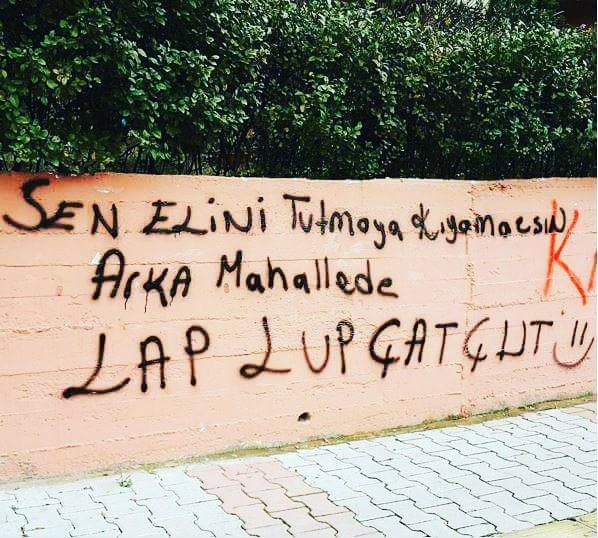 SEN ELİNİ Tutmaya Kıyamacsın
ArKA Mahallede
LAP LUP ÇAT ÇUT :)